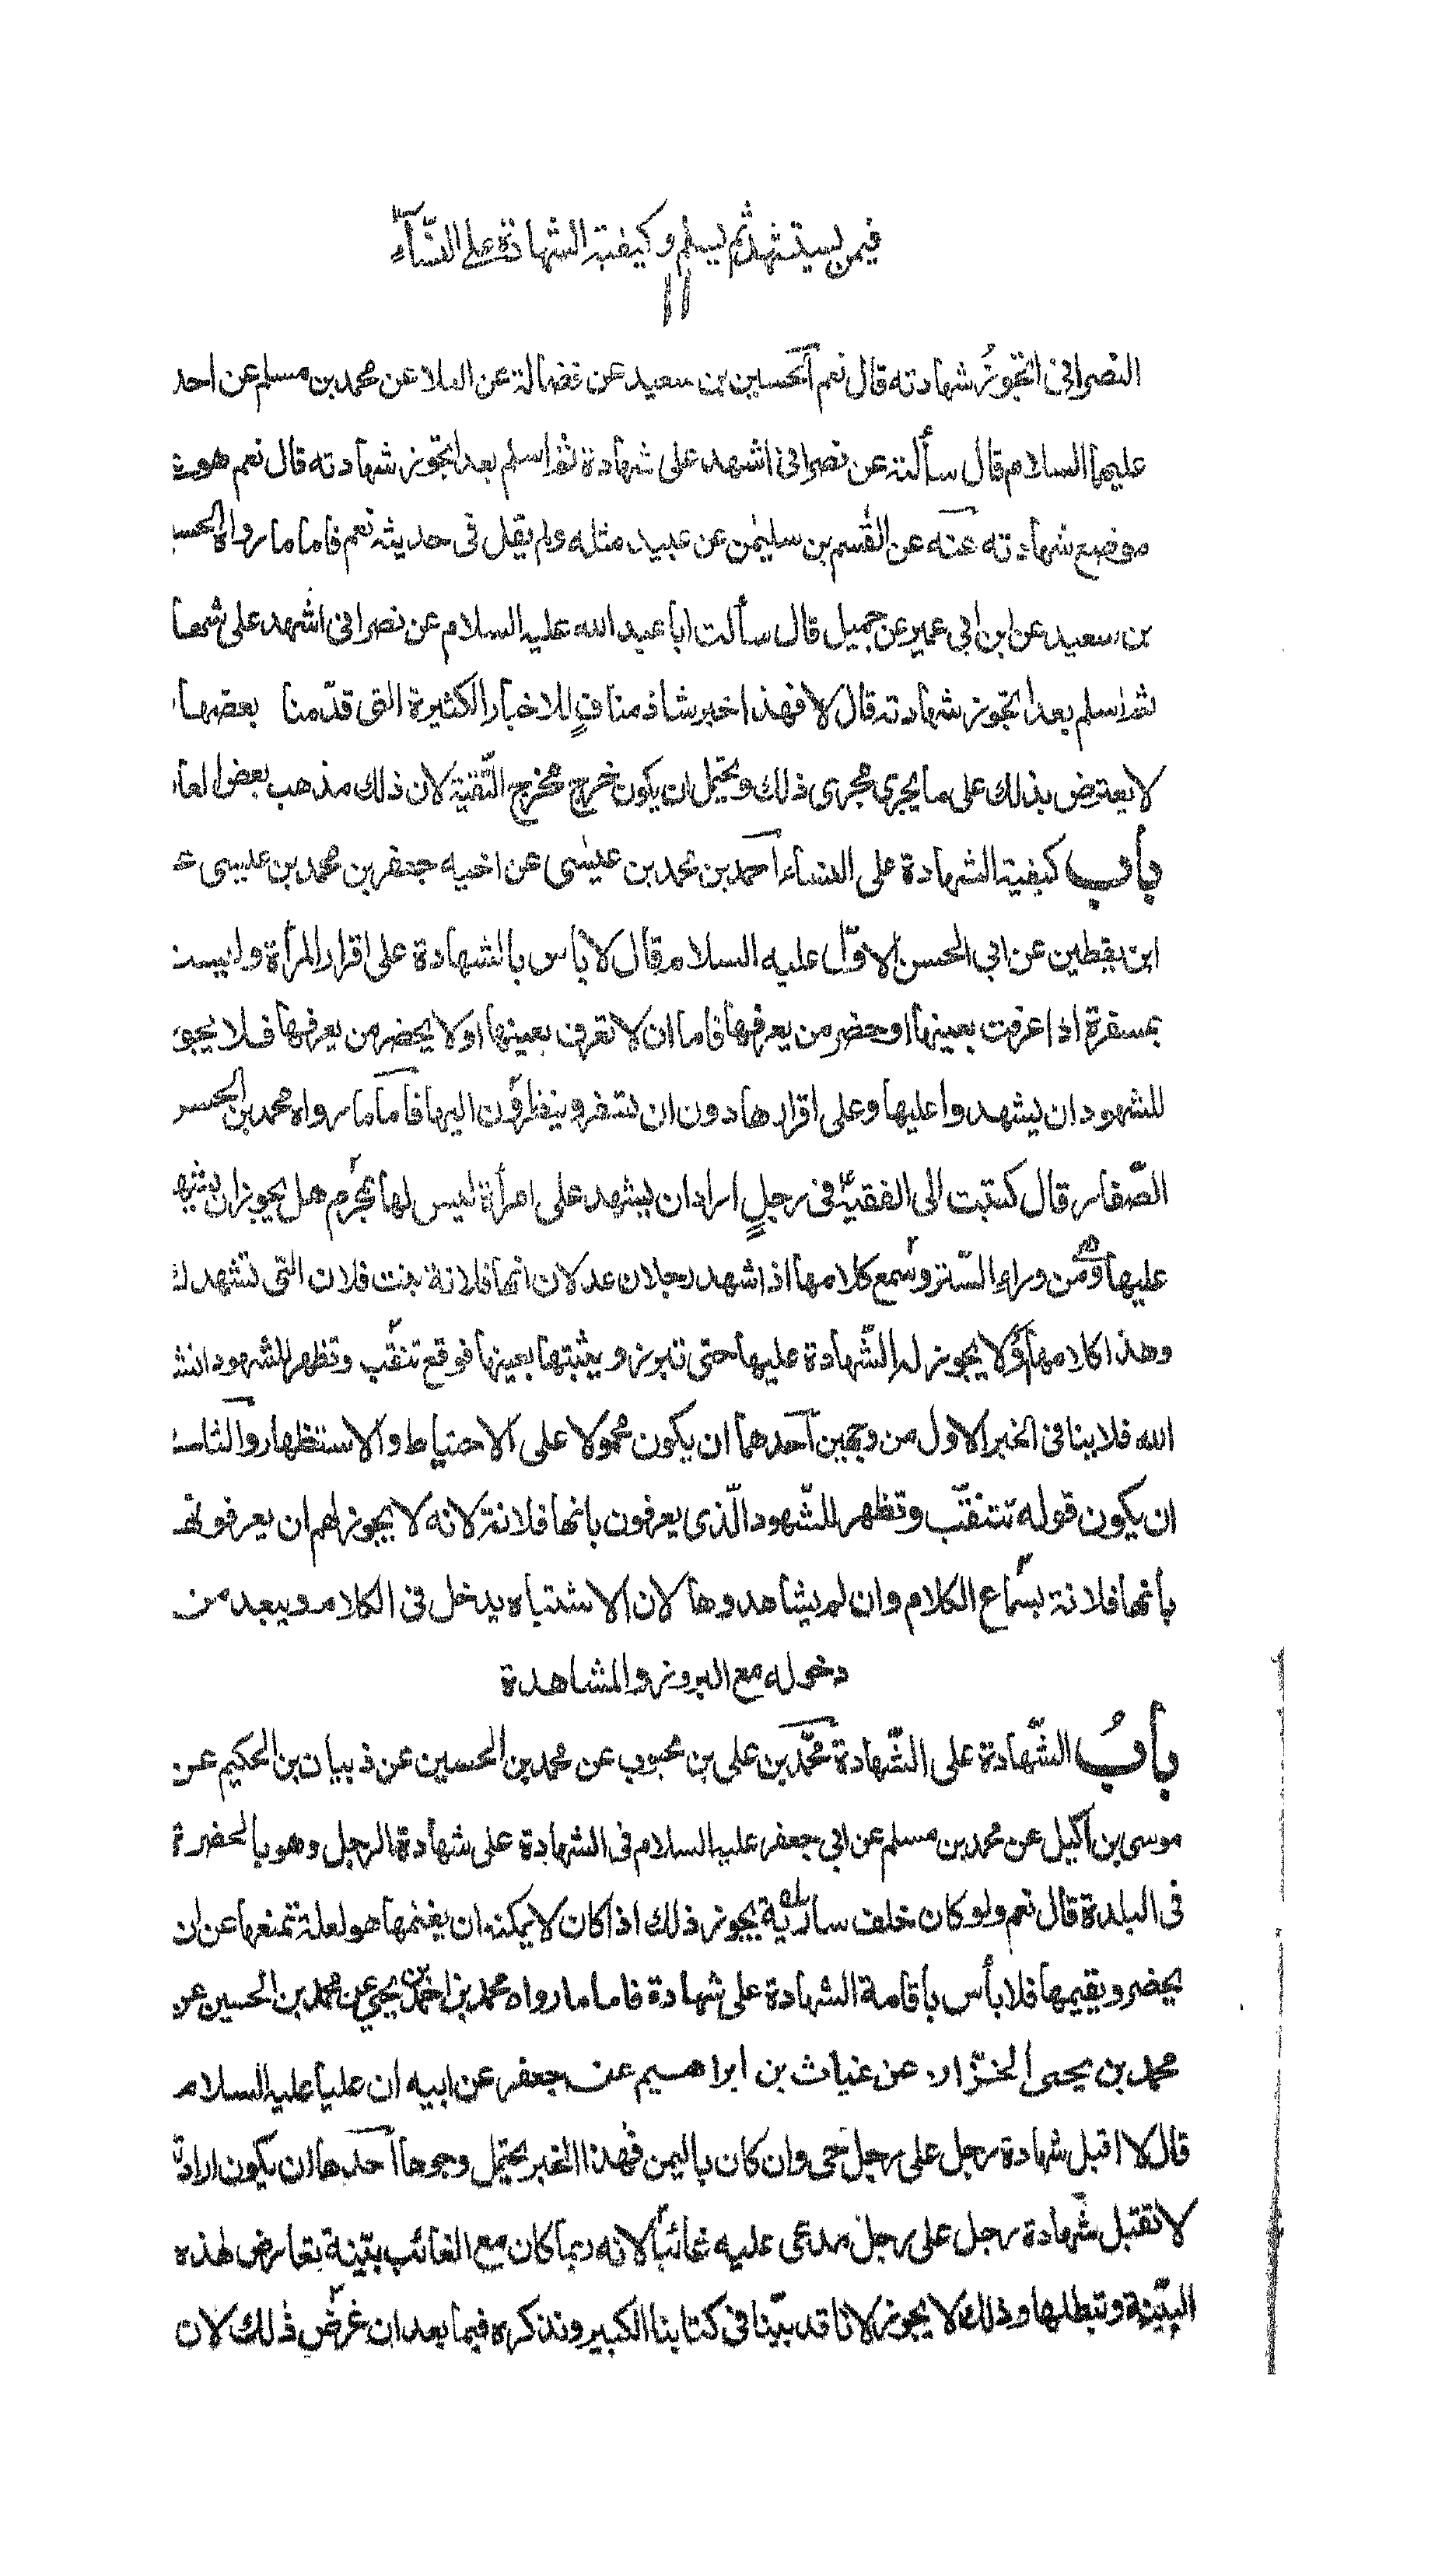 فيمن يستشهد ثم يسلم وكيفية الشهادة على النسآء
١١
النصرانى اتجوز شهادته قال نعم الحسين بن سعيد عن فضالة عن العلا عن محمد بن مسلم عن احد
عليهما السلام قال سألته عن نصرانى اشهد على شهادة ثم اسلم بعد اتجوز شهادته قال نعم هو
موضع شهادته عنه عن القسم بن سليمن عن عبيد مثله ولم يقل فى حديثه نعم فاما ما رواه الحسـ
بن سعيد عن ابن ابى عمير عن جميل قال سألت ابا عبد الله عليه السلام عن نصرانى اشهد على شها
ثم اسلم بعد اتجوز شهادته قال لا فهذا خبر شاذ منافٍ للاخبار الكثيرة التى قدّمنا بعضها
لا يعترض بذلك على ما يجرى مجرى ذلك ويحتمل ان يكون خرج مخرج التّقية لان ذلك مذهب بعض العا
باب كيفية الشهادة على النساء احمد بن محمد بن عيسى عن اخيه جعفر بن محمد بن عيسى عـ
ابن يقطين عن ابى الحسن الاوّل عليه السلام قال لا باس بالشهادة على اقرار المرأة وليست
بمسفرة اذا عرفت بعينها او حضر من يعرفها فاما ان لا تعرف بعينها او لا يحضر من يعرفها فلا يجو
للشهود ان يشهدوا عليها وعلى اقرارها دون ان تسفر وينظرون اليها فاما ما رواه محمد بن الحسـ
الصّفار قال كتبت الى الفقيه فى رجلٍ اراد ان يشهد على امرأة ليس لها بمحرم هل يجوز ان يشهـ
عليها من وراء السّتر وسمع كلامها اذا شهد رجلان عدلان انها فلانة بنت فلان التى تشهدك
وهذا كلامها او لا يجوز له الشّهادة عليها حتى تبرز ويثبتها بعينها فوقع تتنقّب وتظهر للشهود انشـ
الله فلا ينافى الخبر الاول من وجهين احدهما ان يكون محمولا على الاحتياط والاستظهار والثانـ
ان يكون قوله تتنقّب وتظهر للشّهود الّذى يعرفون بانها فلانة لانه لا يجوز لهم ان يعرفو
بانها فلانة بسماع الكلام وان لم يشاهدوها لان الاشتباه يدخل فى الكلام ويبعد من
دخوله مع البروز والمشاهدة
بابُ الشّهادة على الشّهادة محمّد بن على بن محبوب عن محمد بن الحسين عن ذبيان بن الحكيم عن
موسى بن اكيل عن محمد بن مسلم عن ابى جعفر عليه السلام فى الشهادة على شهادة الرجل وهو بالحضرة
فى البلدة قال نعم ولو كان خلف سارية يجوز ذلك اذا كان لا يمكنه ان يقيمها هو لعلة تمنعها عن ان
يحضر ويقيمها فلا بأس باقامة الشهادة على شهادة فاما ما رواه محمد بن احمد بن يحيى عن محمد بن الحسين عن
محمد بن يحيى الخزّار عن غياث بن ابراهيم عن جعفر عن ابيه ان عليا عليه السلام
قال لا اقبل شهادة رجل على رجل حى وان كان باليمن فهذا الخبر يحتمل وجوها احدها ان يكون اراد
لا تقبل شهادة رجل على رجل مدعى عليه غائبا لانه ربما كان مع الغائب بيّنة تعارض لهذه
البيّنة وتبطلها وذلك لا يجوز لانا قد بيّنا فى كتابنا الكبير ونذكره فيما بعد ان غرض ذلك لان